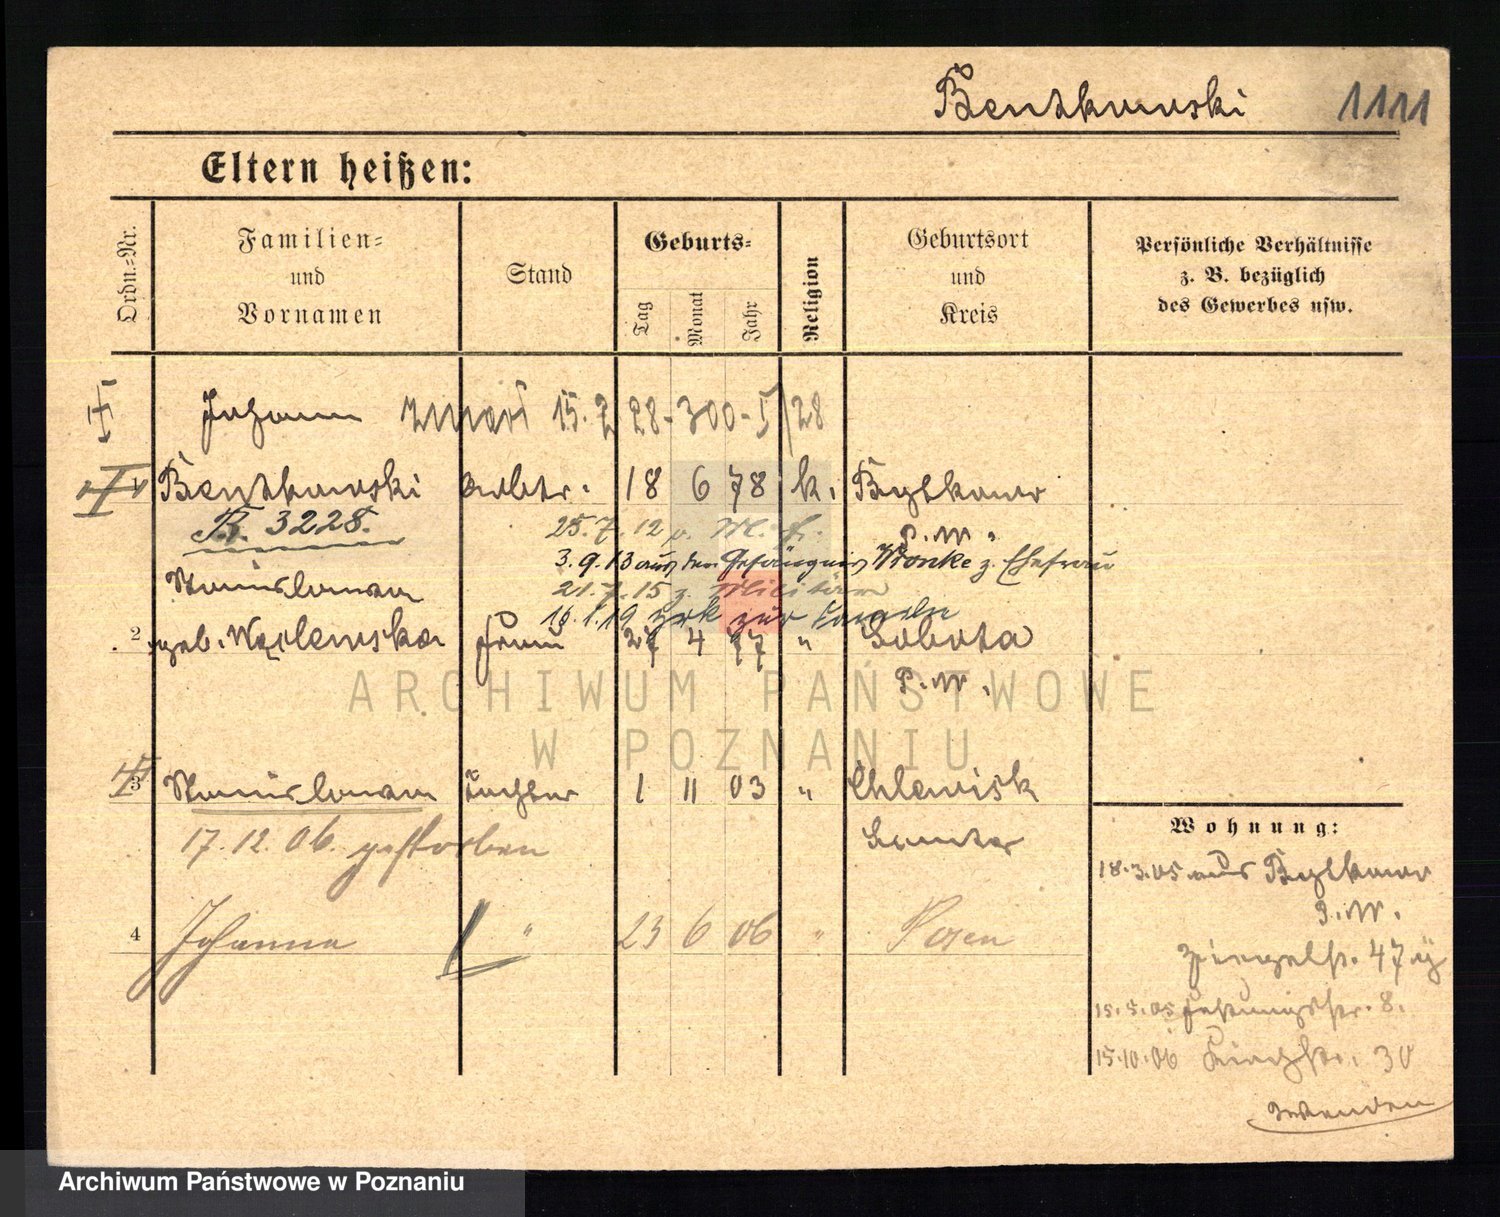 Bentkowski 1111
Eltern heißen:
Ordn.-Nr. Familien- und Vornamen Stand Geburts- Tag Monat Jahr Religion Geburtsort und Kreis Persönliche Verhältnisse z. B. bezüglich des Gewerbes usw.
Johann zmarł 15.7 28 - 300 - 5/28
1 Bentkowski Arbtr. 18 6 78 k. Bytkowo
R. 3228. 25.7.12 v. M. P. W.
3.9.13 aus den Gefängnis Wronke z. Ehefrau
Stanislawa 21.7.15 z. Militär
16.1.19 zrk zur
2 geb. Frau 27 4 77 " Sobota
P. W.
ARCHIWUM PAŃSTWOWE
W POZNANIU
3 Stanislawa Tochter 1 11 03 " Chlewisk
17.12.06. gestorben Samter
4 Johanna " 23 6 06 " Posen
Wohnung:
18.3.05 aus Bytkowo
P. W.
Ziegelstr. 47
15.5.05 str. 8.
15.10.06 str. 30
wenden
Archiwum Państwowe w Poznaniu